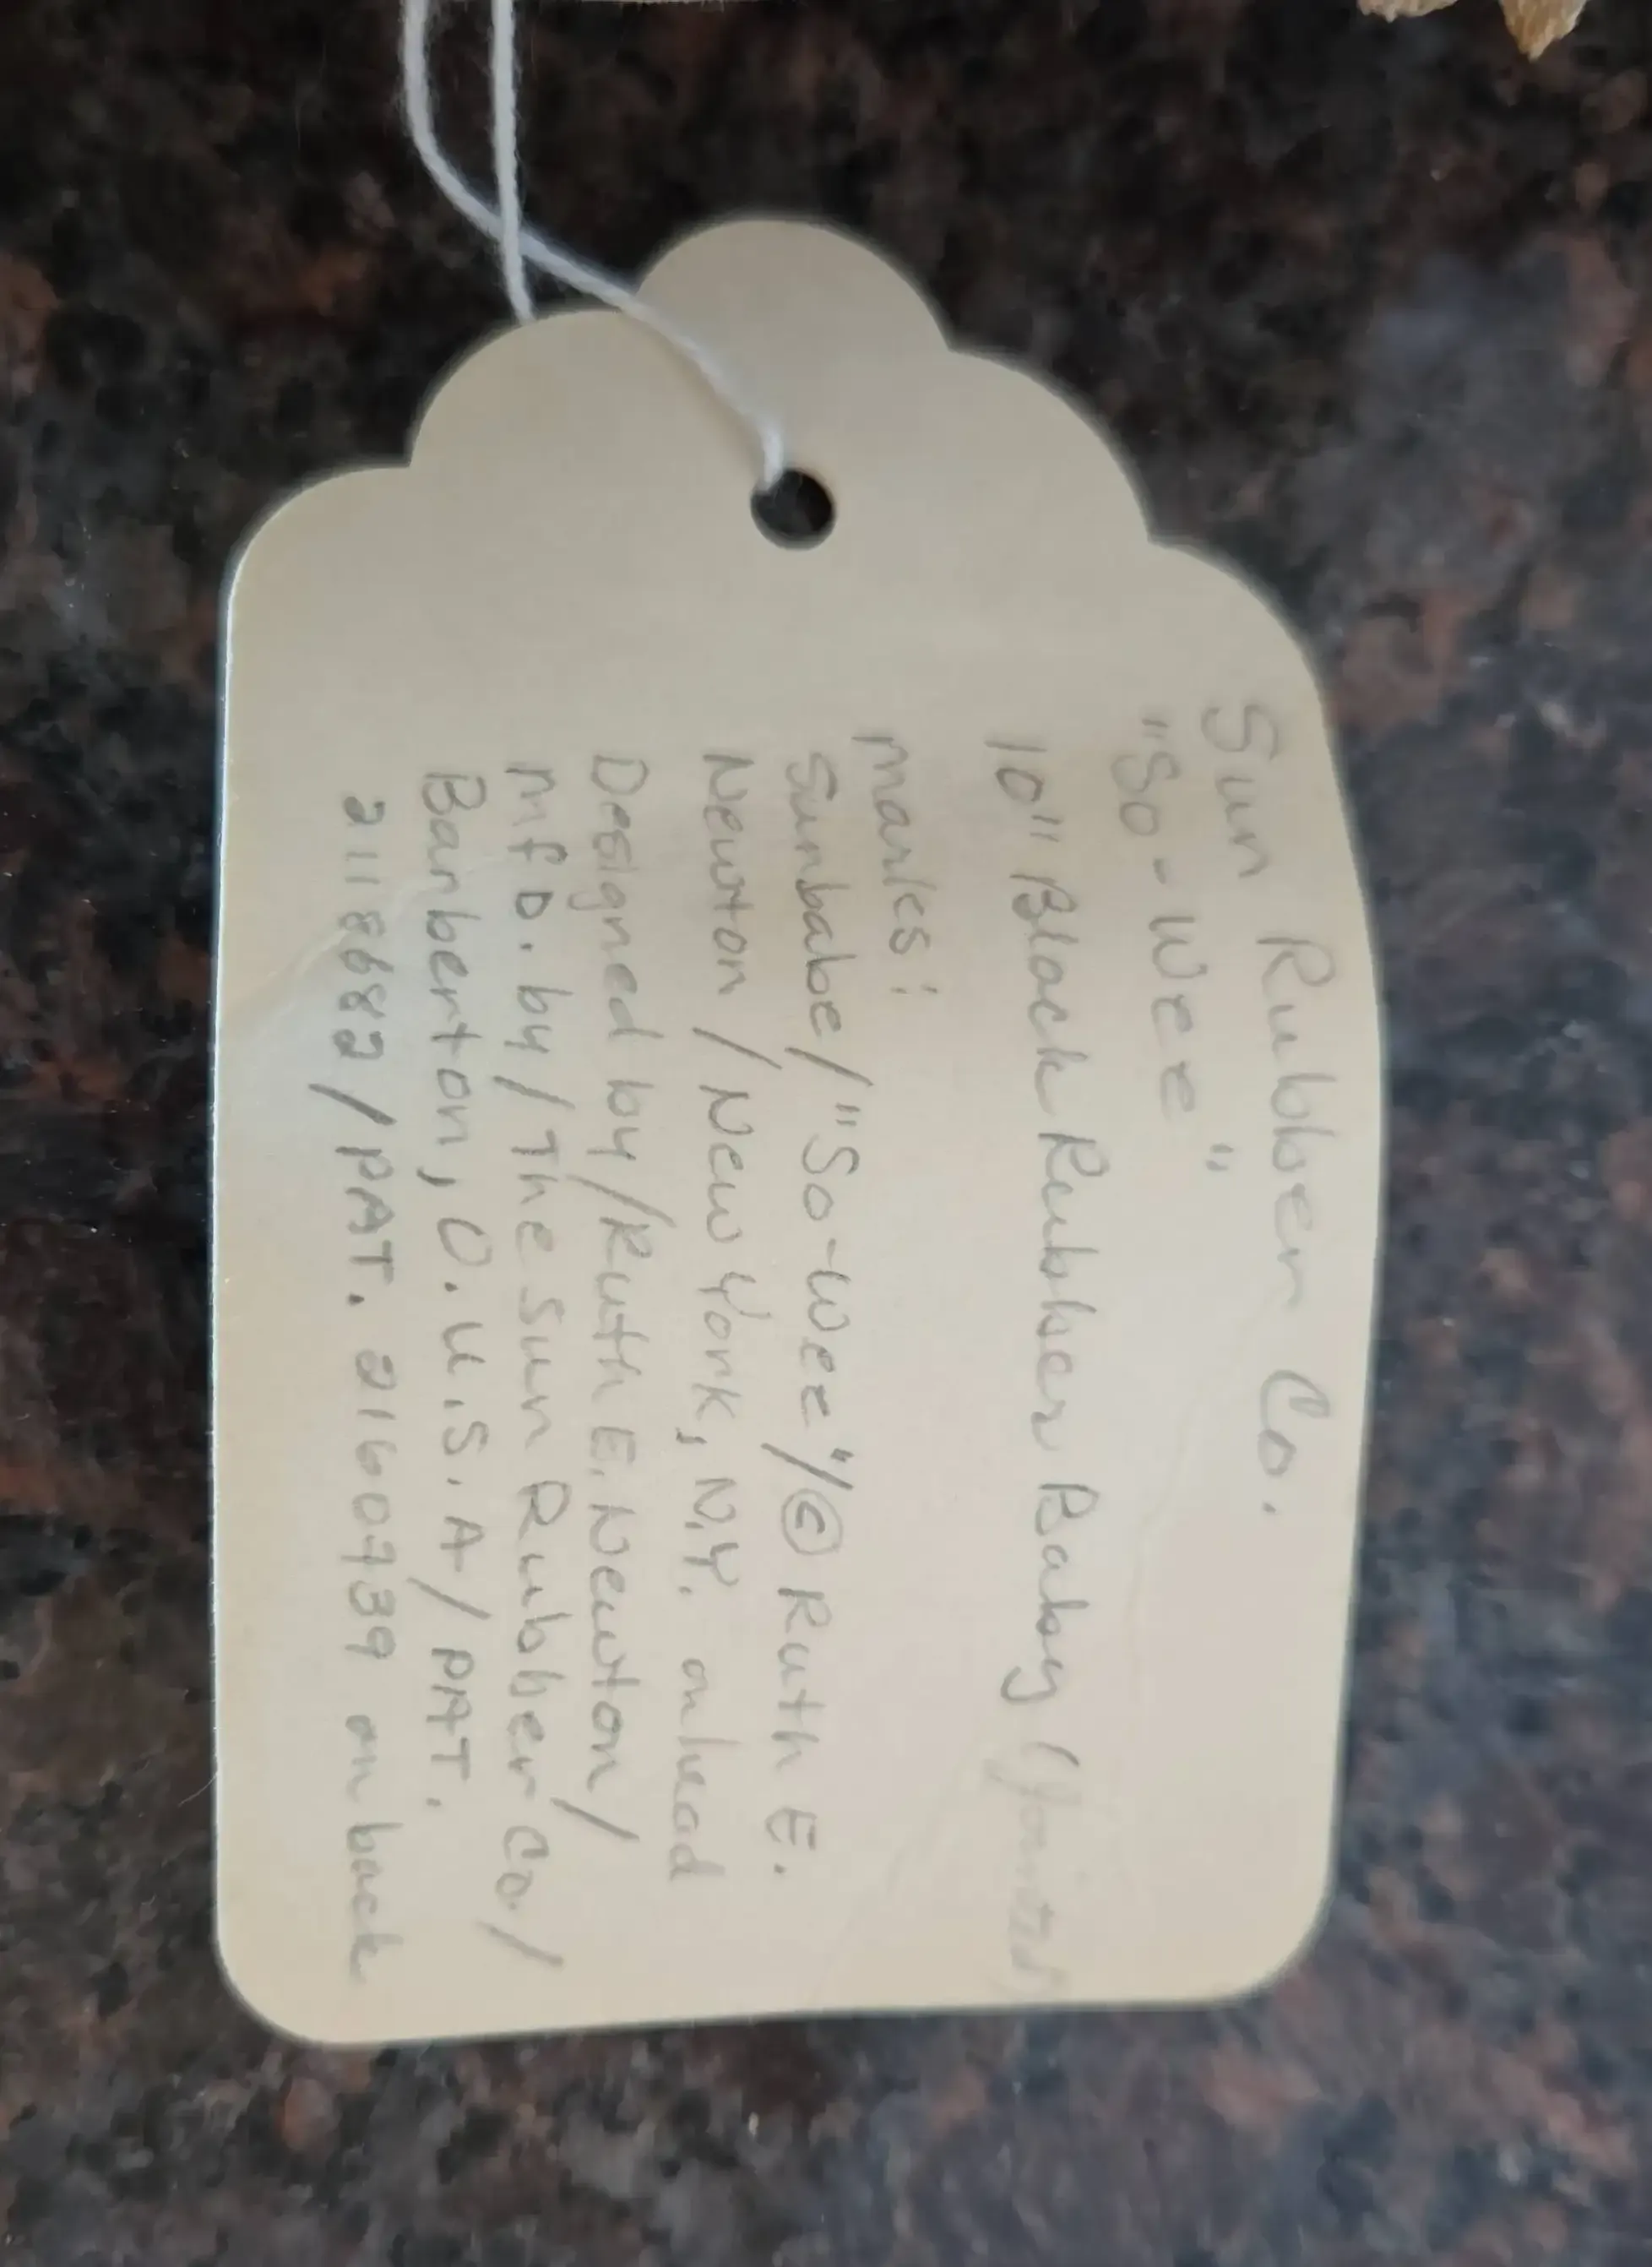 Sun Rubber Co.
"So-Wee"
10" Black Rubber Baby (Jointed)
Marks:
Sunbabe/"So-Wee"/© Ruth E.
Newton/New York, N.Y. on head
Designed by/Ruth E. Newton/
Mfd. by/The Sun Rubber Co./
Barberton, O. U.S.A/PAT.
2118682/PAT. 2160739 on back